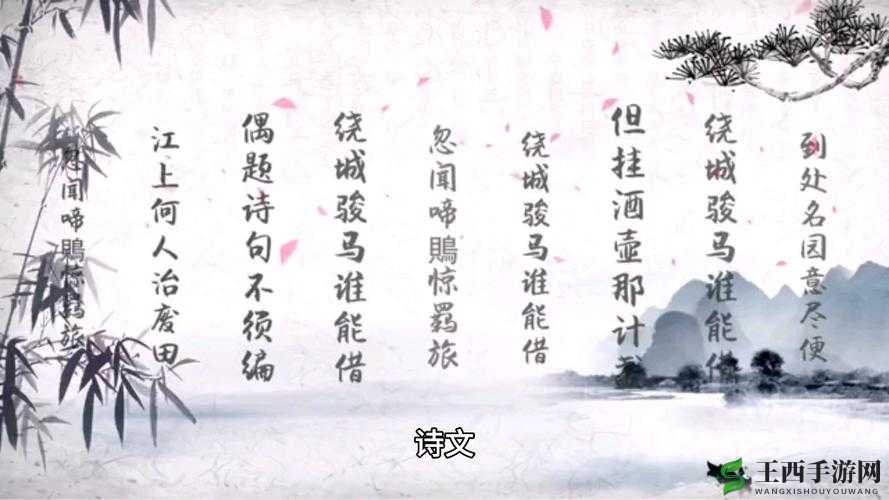 到处名园意尽便
绕城骏马谁能借
但挂酒壶那计
绕城骏马谁能借
忽闻啼鵙惊羁旅
绕城骏马谁能借
偶题诗句不须编
江上何人治废田
忽闻啼鵙惊羁旅
诗文
王西手游网
WANGXISHOUYOUWANG